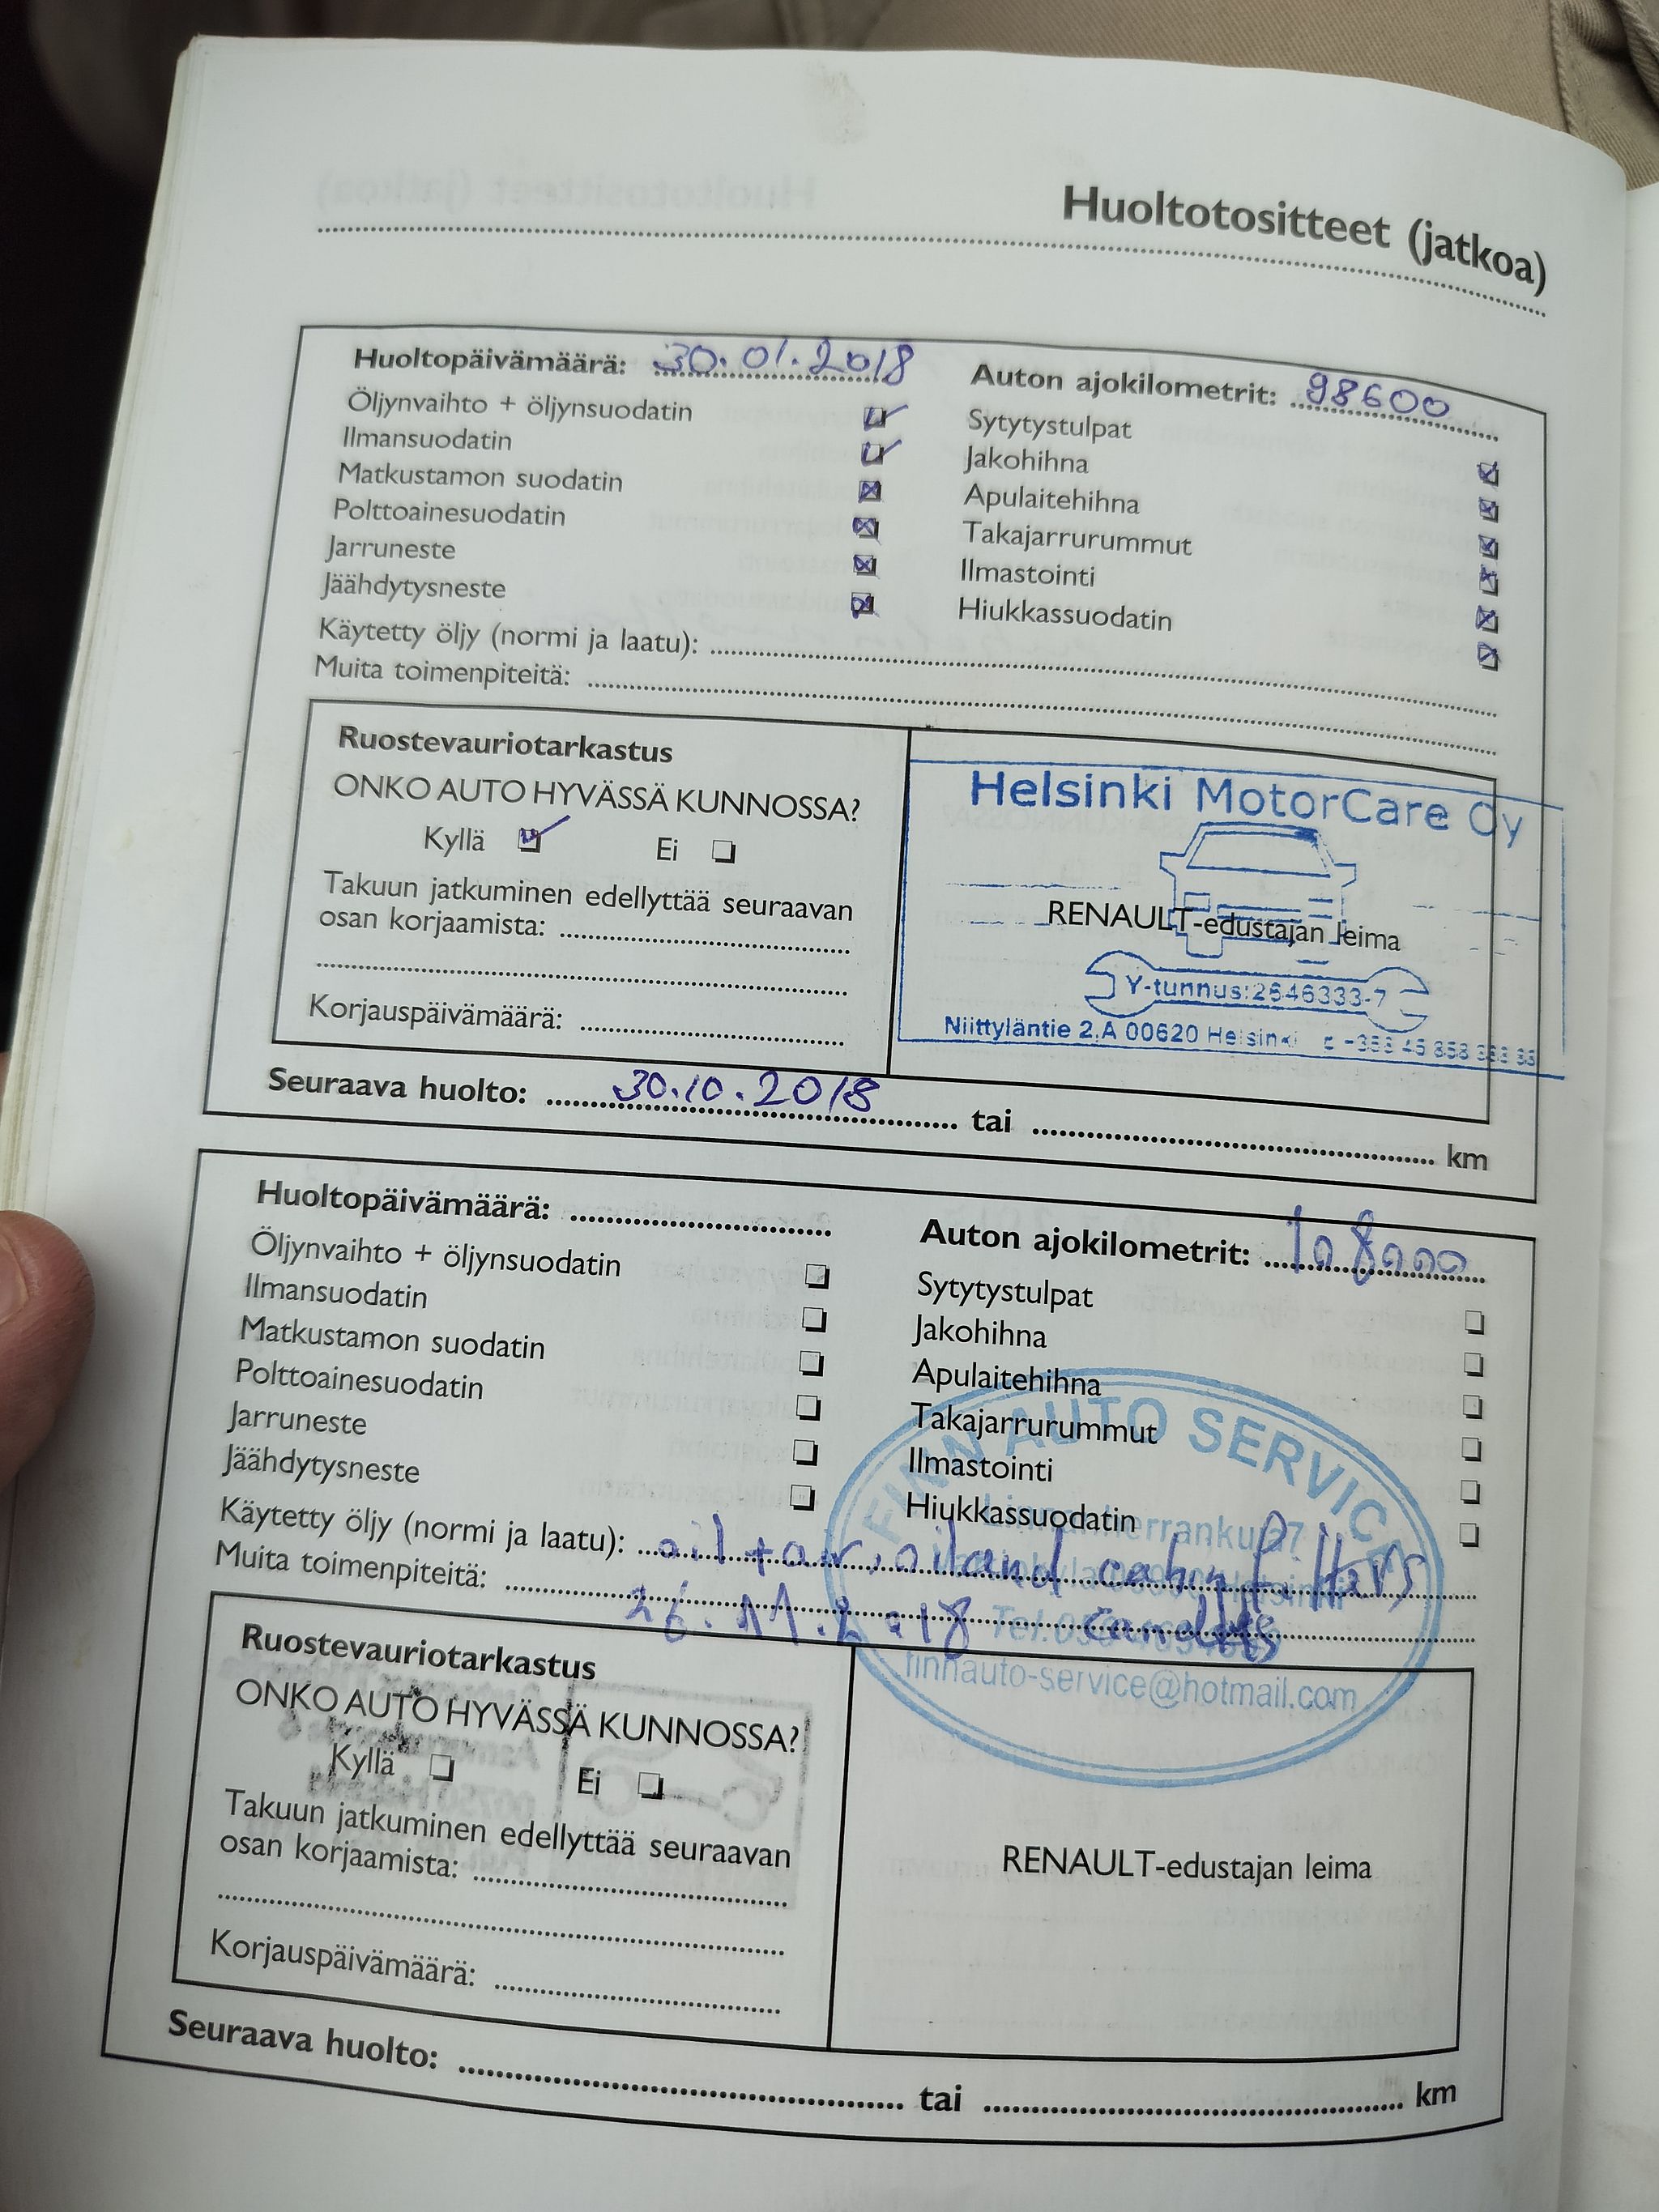 Huoltotositteet (jatkoa)
Huoltopäivämäärä: 30.01.2018
Auton ajokilometrit: 98600
Öljynvaihto + öljynsuodatin
Sytytystulpat
Ilmansuodatin
Jakohihna
Matkustamon suodatin
Apulaitehihna
Polttoainesuodatin
Takajarrurummut
Jarruneste
Ilmastointi
Jäähdytysneste
Hiukkassuodatin
Käytetty öljy (normi ja laatu):
Muita toimenpiteitä:
Ruostevauriotarkastus
ONKO AUTO HYVÄSSÄ KUNNOSSA?
Kyllä Ei
Takuun jatkuminen edellyttää seuraavan
osan korjaamista:
Korjauspäivämäärä:
Helsinki MotorCare Oy
RENAULT-edustajan leima
Y-tunnus:2646333-7
Niittyläntie 2.A 00620 Helsinki
Seuraava huolto: 30.10.2018 tai km
Huoltopäivämäärä:
Auton ajokilometrit: 108000
Öljynvaihto + öljynsuodatin
Sytytystulpat
Ilmansuodatin
Jakohihna
Matkustamon suodatin
Apulaitehihna
Polttoainesuodatin
Takajarrurummut
Jarruneste
Ilmastointi
Jäähdytysneste
Hiukkassuodatin
FINN AUTO SERVICE
Käytetty öljy (normi ja laatu): oil + air, oil and cabin filters
Muita toimenpiteitä:
26.11.2018
finnauto-service@hotmail.com
Ruostevauriotarkastus
ONKO AUTO HYVÄSSÄ KUNNOSSA?
Kyllä Ei
Takuun jatkuminen edellyttää seuraavan
osan korjaamista:
Korjauspäivämäärä:
RENAULT-edustajan leima
Seuraava huolto: tai km